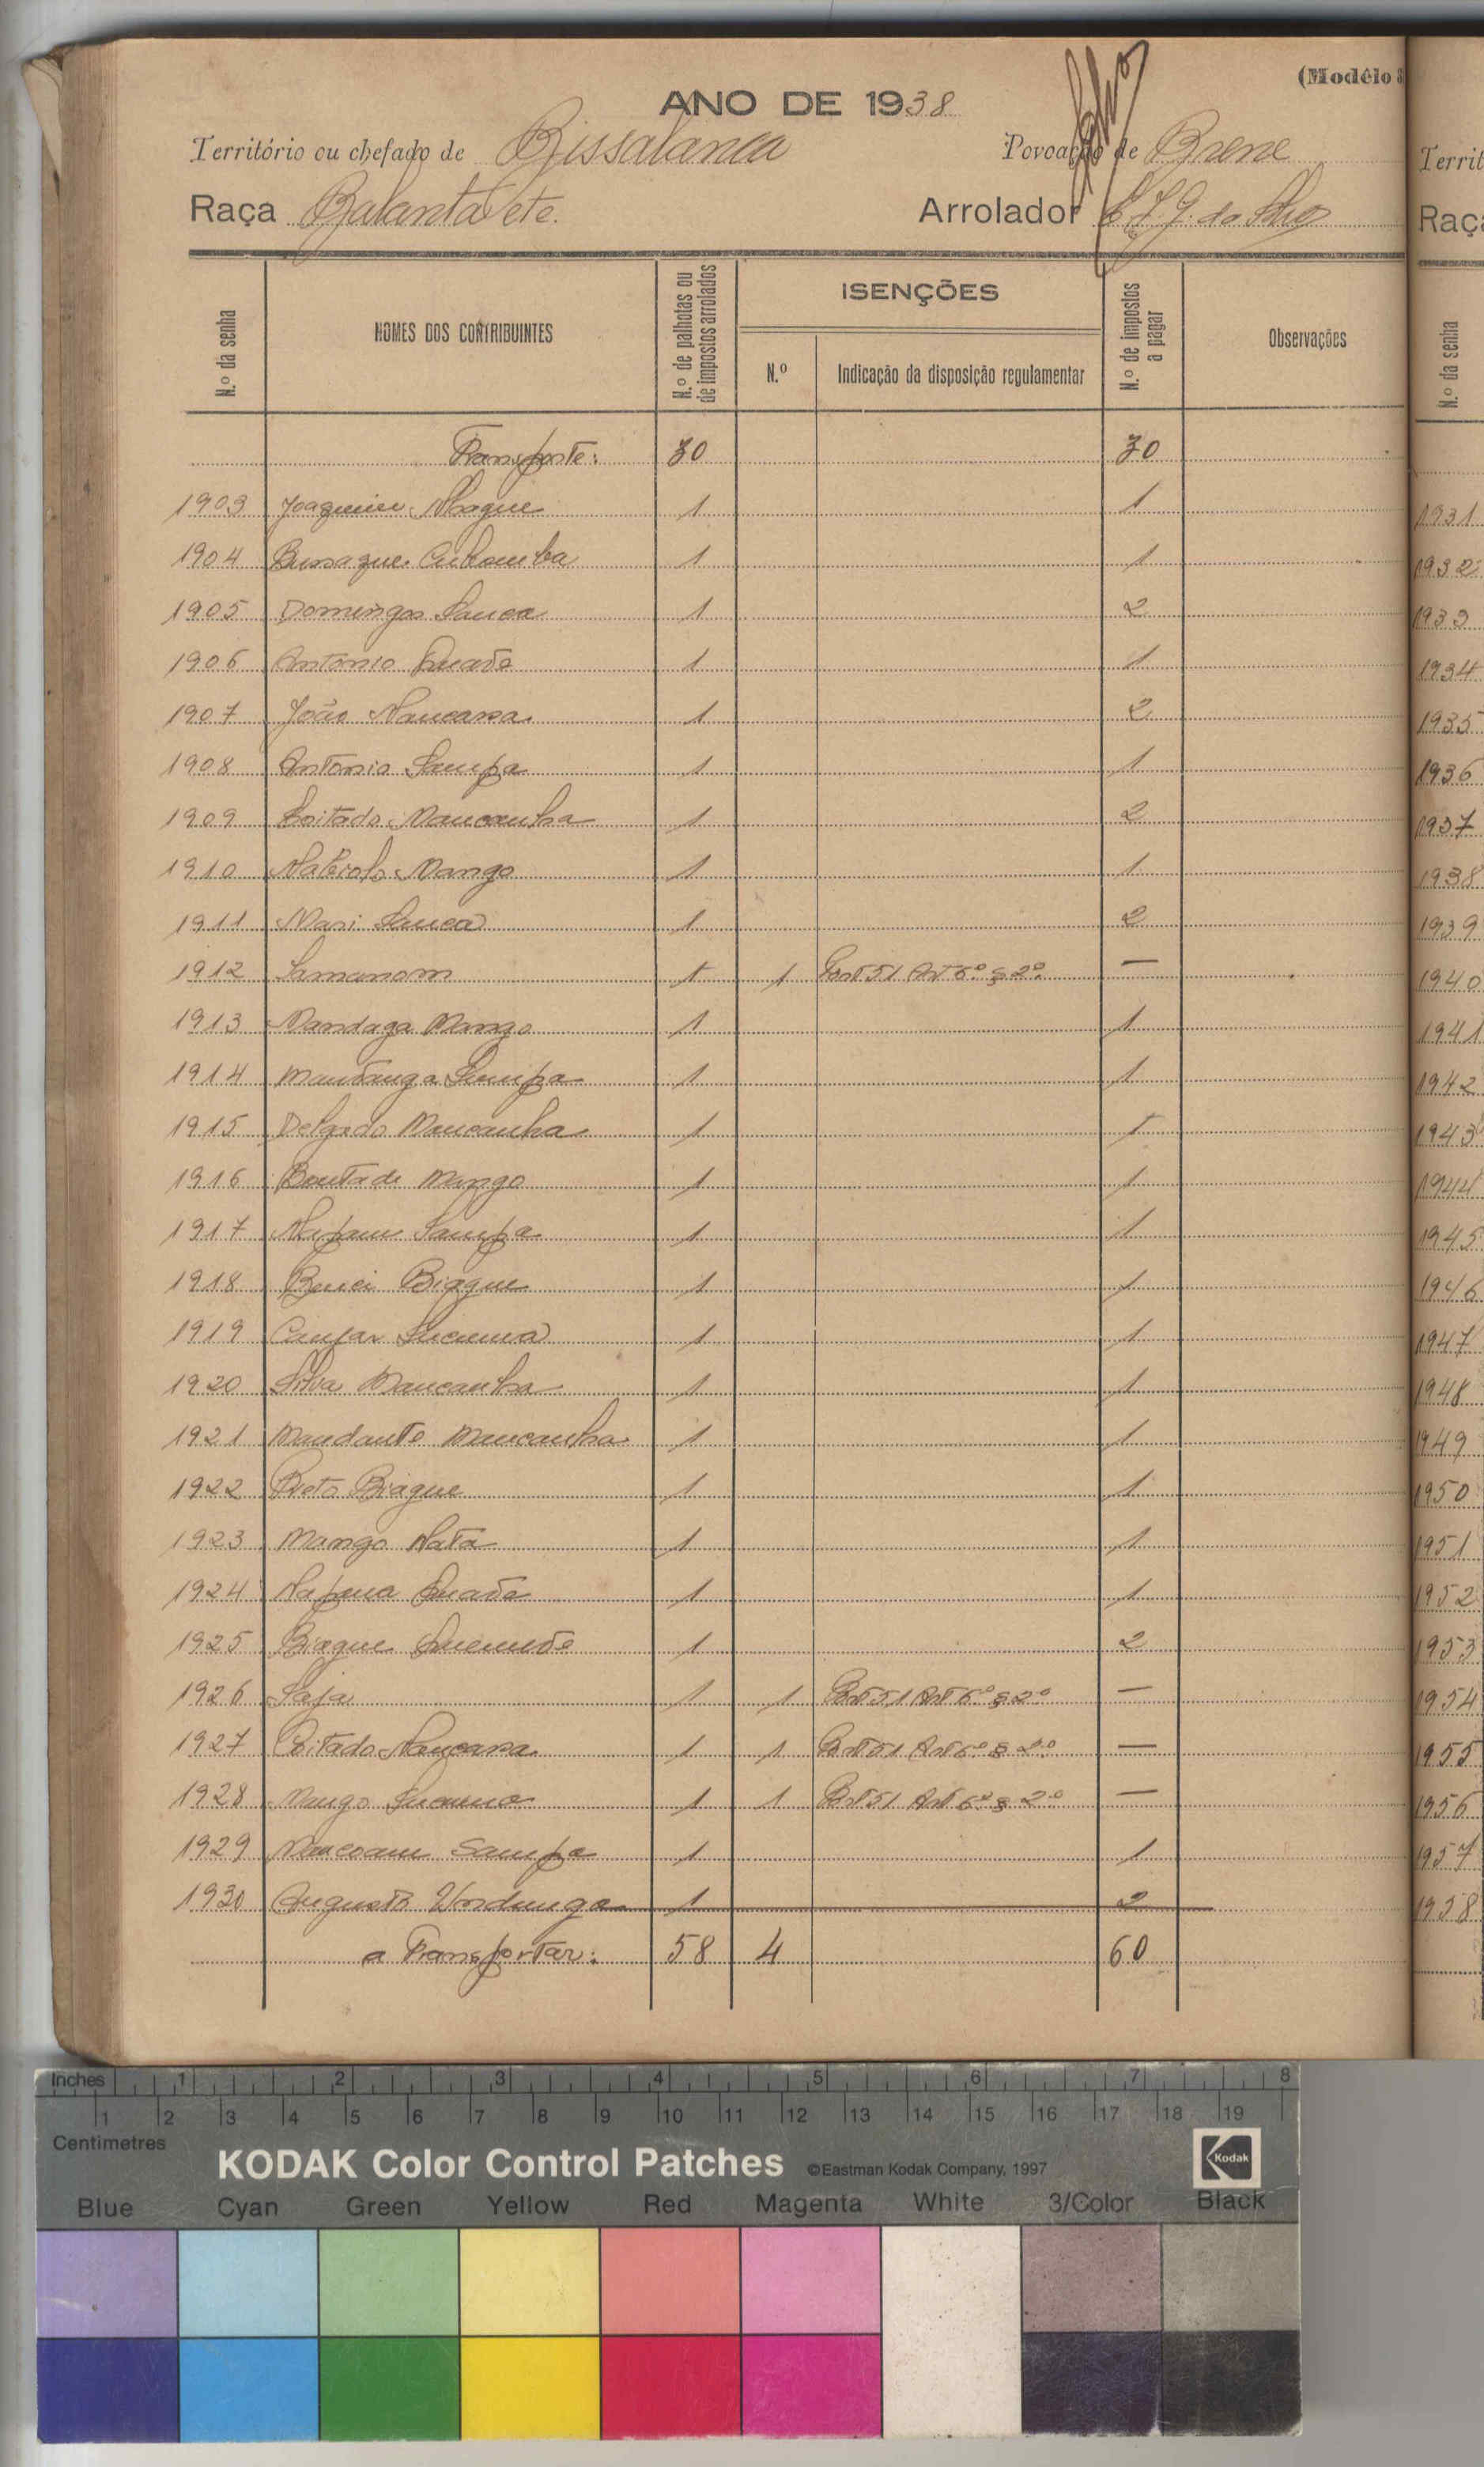 (Modêlo
ANO DE 1938
Território ou chefado de Bissalanca Povoação de Brene
Raça Balanta ete. Arrolador
N.º da senha
NOMES DOS CONTRIBUINTES
N.º de palhotas ou de impostos arrolados
ISENÇÕES
N.º
Indicação da disposição regulamentar
N.º de impostos a pagar
Observações
Transporte: 30 30
1903 Joaquim 1 1
1904 1 1
1905 Domingos Sanca 1 2
1906 Antonio Quade 1 1
1907 João Nancassa 1 2
1908 Antonio Sampa 1 1
1909 Coitado Mancanha 1 2
1910 Mango 1 1
1911 Mari Sanca 1 2
1912 1 1 Port 51 Art 6º § 2º —
1913 Mandaga Mango 1 1
1914 Sampa 1 1
1915 Delgado Mancanha 1 1
1916 Bontade Mango 1 1
1917 Sampa 1 1
1918 Biague 1 1
1919 1 1
1920 Silva Mancanha 1 1
1921 Mandante Mancanha 1 1
1922 Preto Biague 1 1
1923 Mango Nata 1 1
1924 Nafana Quade 1 1
1925 Biague 1 2
1926 Saja 1 1 Port 51 Art 6º § 2º —
1927 Coitado Nancassa 1 1 Port 51 Art 6º § 2º —
1928 Mango 1 1 Port 51 Art 6º § 2º —
1929 Sampa 1 1
1930 Augusto 1 2
a Transportar: 58 4 60
Territ
Raça
N.º da senha
1931
1932
1933
1934
1935
1936
1937
1938
1939
1940
1941
1942
1943
1944
1945
1946
1947
1948
1949
1950
1951
1952
1953
1954
1955
1956
1957
1958
Inches 1 2 3 4 5 6 7 8
1 2 3 4 5 6 7 8 9 10 11 12 13 14 15 16 17 18 19
Centimetres
KODAK Color Control Patches ©Eastman Kodak Company, 1997 Kodak
Blue Cyan Green Yellow Red Magenta White 3/Color Black